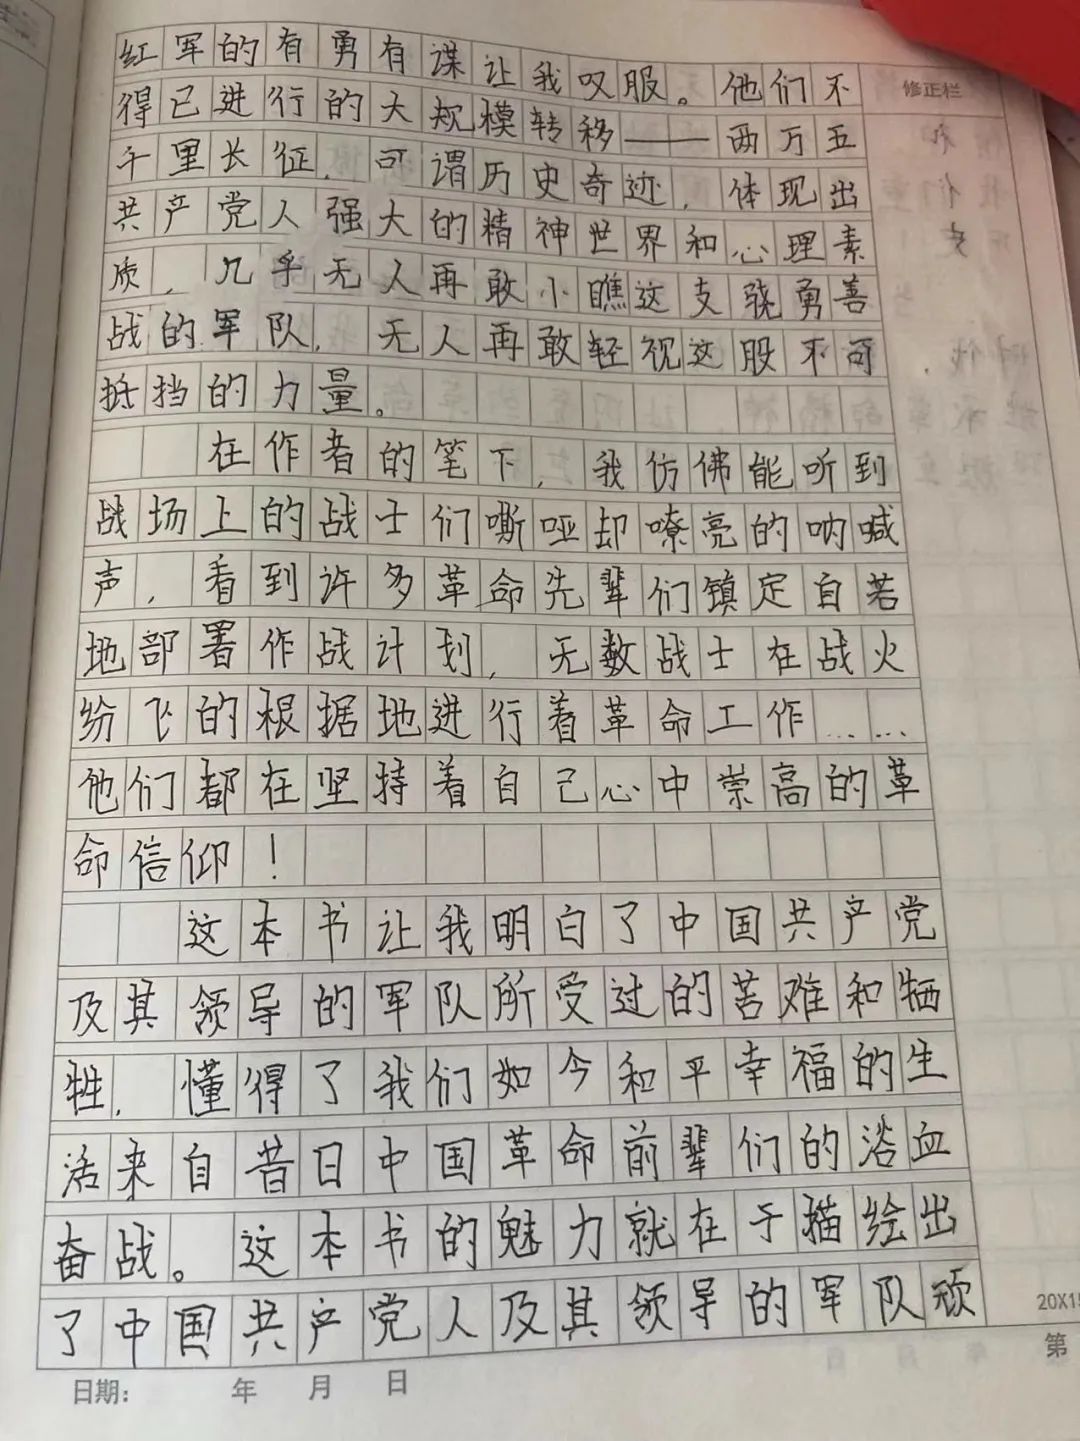 红军的有勇有谋让我叹服。他们不
得已进行的大规模转移——两万五
千里长征,可谓历史奇迹,体现出
共产党人强大的精神世界和心理素
质,几乎无人再敢小瞧这支骁勇善
战的军队,无人再敢轻视这股不可
抵挡的力量。
在作者的笔下,我仿佛能听到
战场上的战士们嘶哑却嘹亮的呐喊
声,看到许多革命先辈们镇定自若
地部署作战计划,无数战士在战火
纷飞的根据地进行着革命工作……
他们都在坚持着自己心中崇高的革
命信仰!
这本书让我明白了中国共产党
及其领导的军队所受过的苦难和牺
牲,懂得了我们如今和平幸福的生
活来自昔日中国革命前辈们的浴血
奋战。这本书的魅力就在于描绘出
了中国共产党人及其领导的军队顽
修正栏
20X15
第
日期: 年 月 日